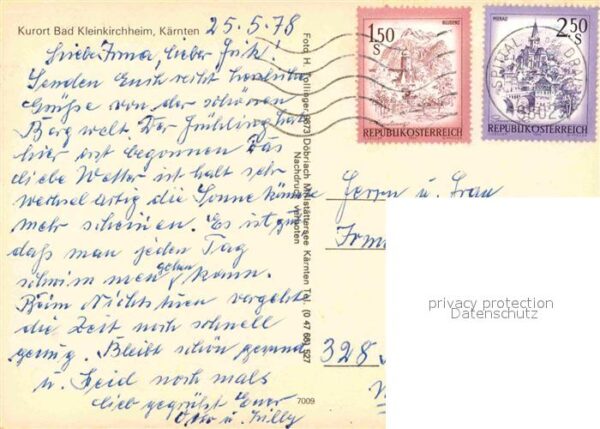 Kurort Bad Kleinkirchheim, Kärnten
25.5.78
Liebe Irma, lieber
Senden Euch recht herzliche
Grüße von der schönen
Bergwelt. Der Frühling hat
hier erst begonnen Das
liebe Wetter ist halt sehr
wechselartig die Sonne könnte
mehr scheinen. Es ist gut
daß man jeden Tag
schwimmen gehen kann.
Beim Nichtstun vergeht
die Zeit noch schnell
genug. Bleibt schön gesund
u. Seid noch mals
lieb gegrüßt Euer
Otto u. Willy
7009
Foto H. Tollinger, 9873 Döbriach Millstättersee Kärnten Tel. (0 47 68) 527
Nachdruck verboten
BLUDENZ
1.50
S
REPUBLIK ÖSTERREICH
MURAU
2.50
S
REPUBLIK ÖSTERREICH
Herrn u. Frau
328
privacy protection
Datenschutz